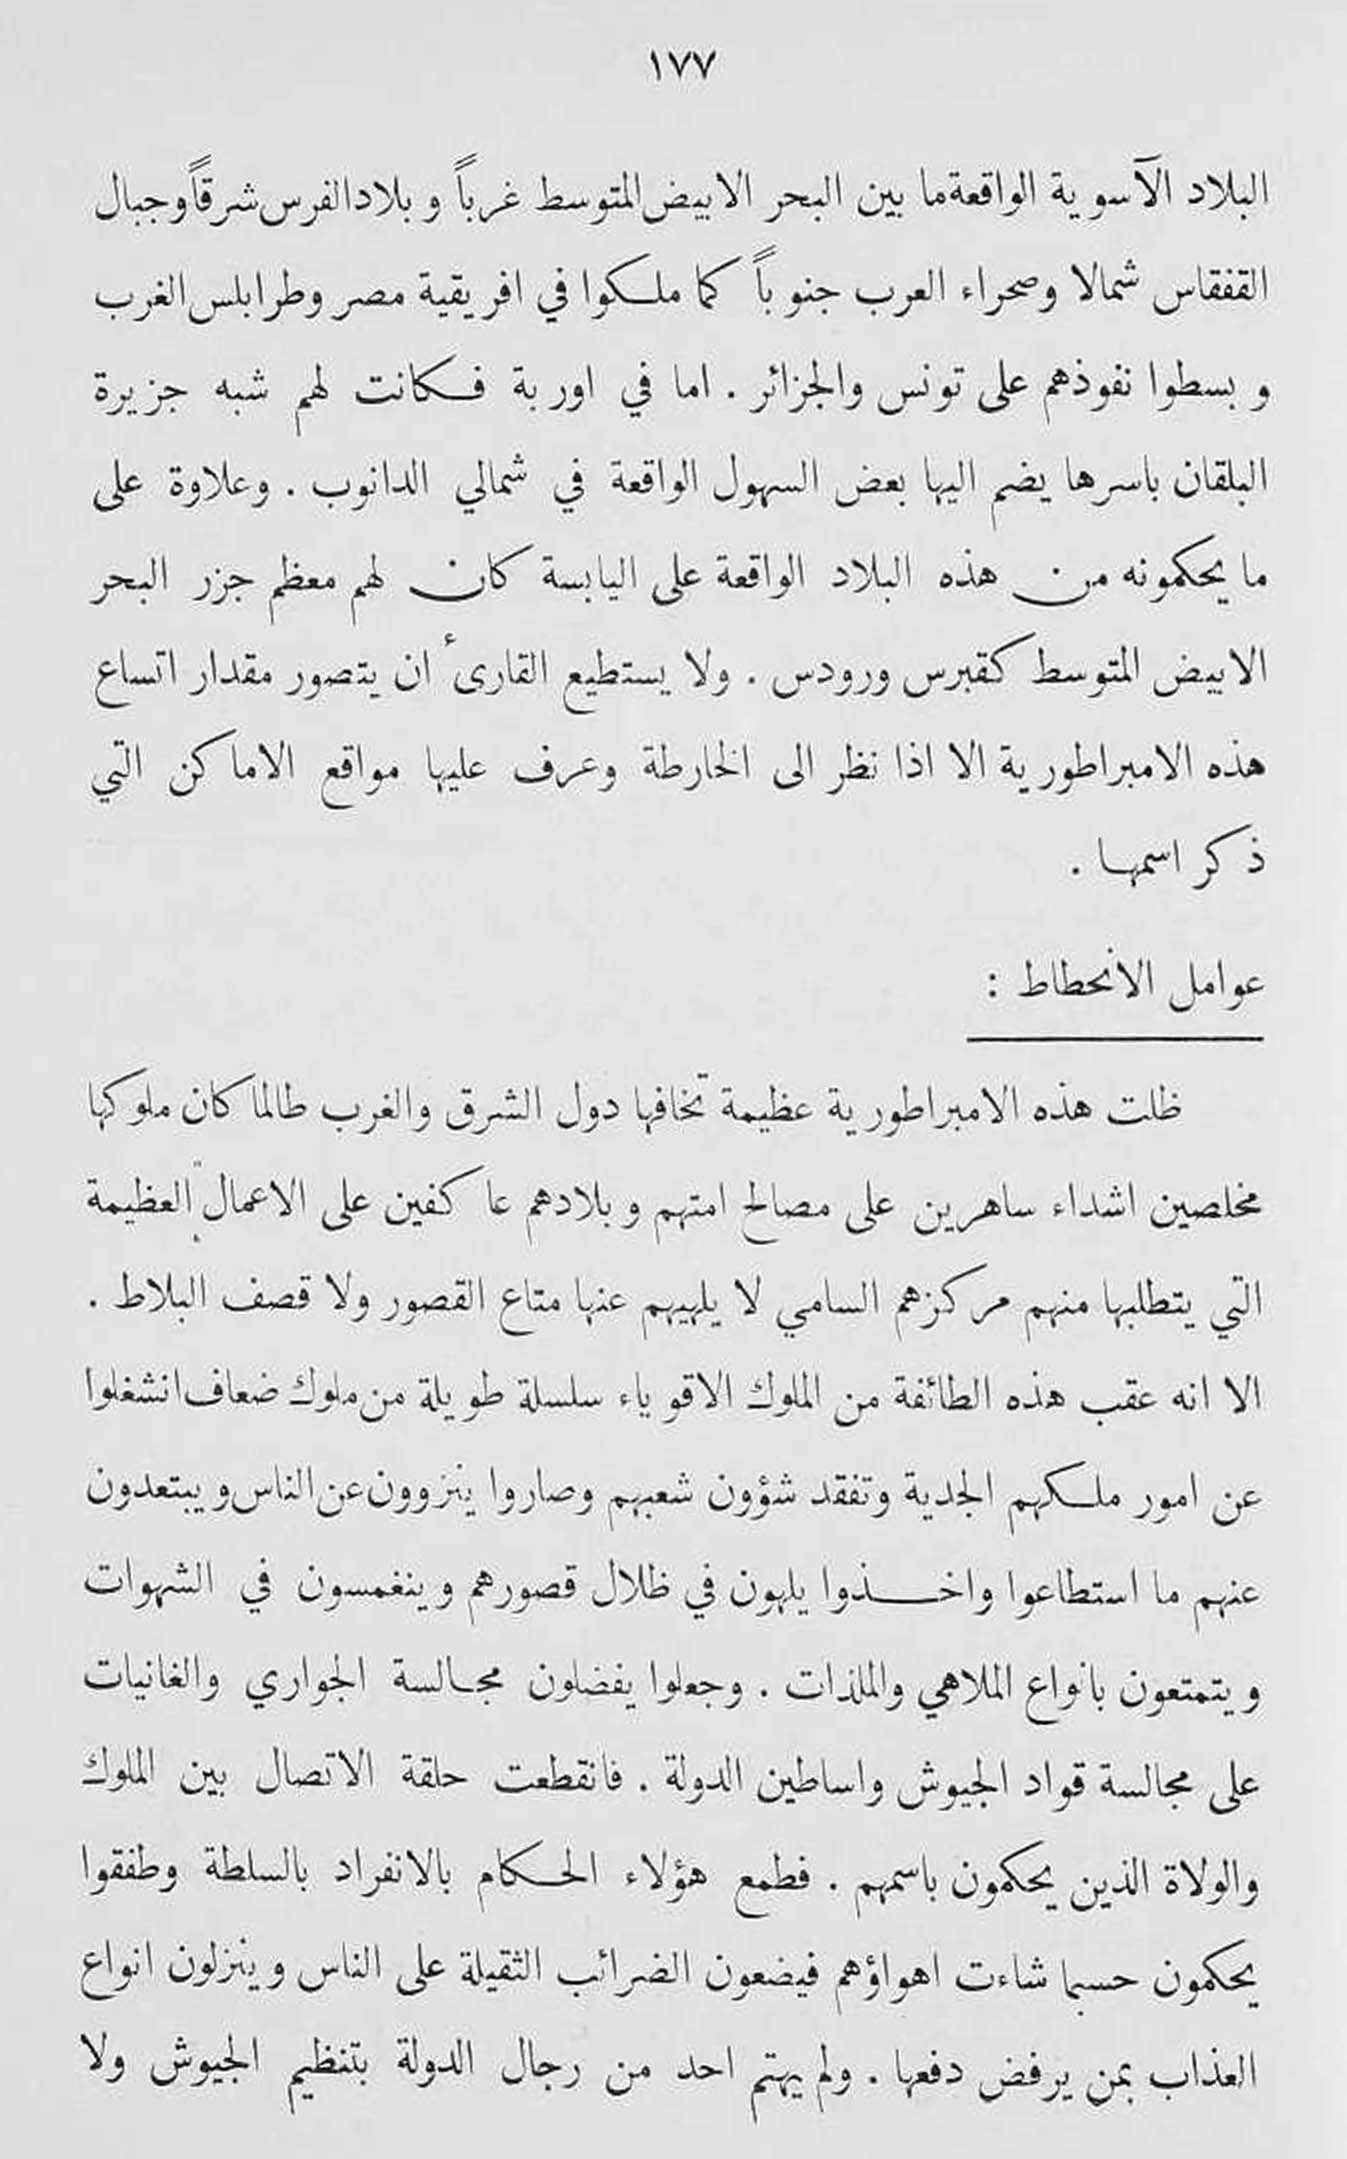 ١٧٧
البلاد الآسوية الواقعة ما بين البحر الابيض المتوسط غرباً وبلاد الفرس شرقاً وجبال
القفقاس شمالا وصحراء العرب جنوباً كما ملكوا في افريقية مصر وطرابلس الغرب
وبسطوا نفوذهم على تونس والجزائر . اما في اوربة فكانت لهم شبه جزيرة
البلقان باسرها يضم اليها بعض السهول الواقعة في شمالي الدانوب . وعلاوة على
ما يحكمونه من هذه البلاد الواقعة على اليابسة كان لهم معظم جزر البحر
الابيض المتوسط كقبرس ورودس . ولا يستطيع القارئ ان يتصور مقدار اتساع
هذه الامبراطورية الا اذا نظر الى الخارطة وعرف عليها مواقع الاماكن التي
ذكر اسمها .
عوامل الانحطاط :
ظلت هذه الامبراطورية عظيمة تخافها دول الشرق والغرب طالما كان ملوكها
مخلصين اشداء ساهرين على مصالح امتهم وبلادهم عاكفين على الاعمال العظيمة
التي يتطلبها منهم مركزهم السامي لا يلهيهم عنها متاع القصور ولا قصف البلاط .
الا انه عقب هذه الطائفة من الملوك الاقوياء سلسلة طويلة من ملوك ضعاف انشغلوا
عن امور ملكهم الجدية وتفقد شؤون شعبهم وصاروا ينزوون عن الناس ويبتعدون
عنهم ما استطاعوا واخذوا يلهون في ظلال قصورهم وينغمسون في الشهوات
ويتمتعون بانواع الملاهي والملذات . وجعلوا يفضلون مجالسة الجواري والغانيات
على مجالسة قواد الجيوش واساطين الدولة . فانقطعت حلقة الاتصال بين الملوك
والولاة الذين يحكمون باسمهم . فطمع هؤلاء الحكام بالانفراد بالسلطة وطفقوا
يحكمون حسبما شاءت اهواؤهم فيضعون الضرائب الثقيلة على الناس وينزلون انواع
العذاب بمن يرفض دفعها . ولم يهتم احد من رجال الدولة بتنظيم الجيوش ولا